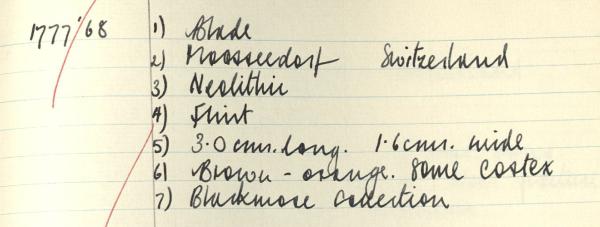 1777'68 1) Blade
2) Moosseedorf Switzerland
3) Neolithic
4) Flint
5) 3.0 cms. long. 1.6 cms. wide
6) Brown - orange. Some cortex
7) Blackmore Collection